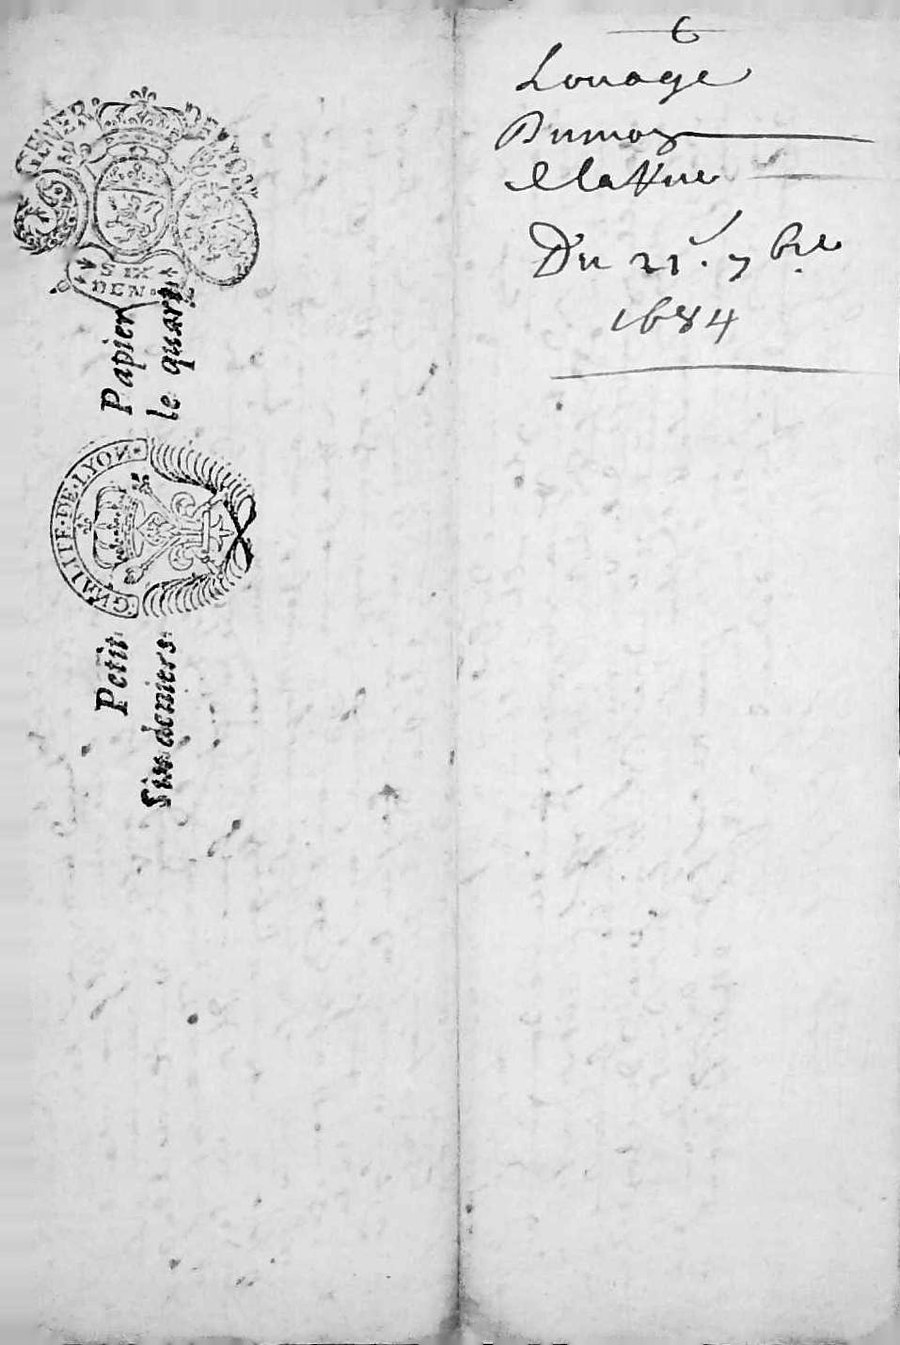 GENER. DE LYON
SIX
DEN.
Papier
le quart
GNALITE·DE·LYON
Petit
Six deniers
6
Louage
Dumoy
Du 21. 7bre
1684